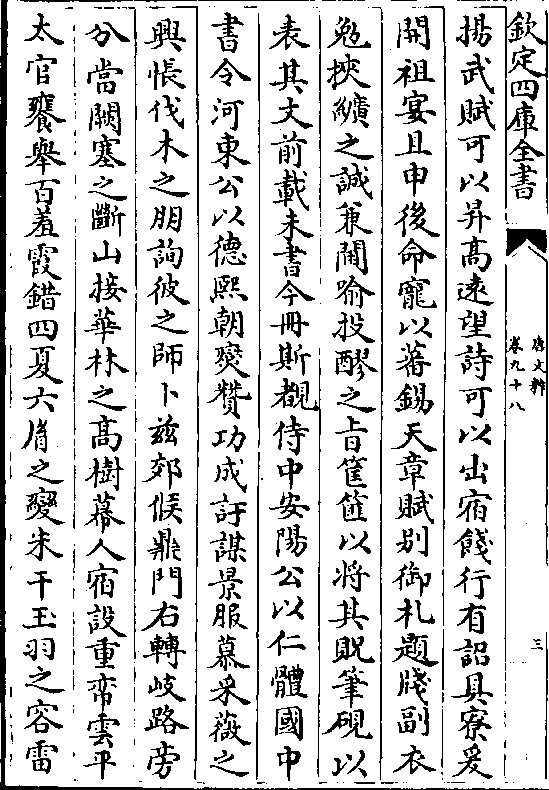 欽定四庫全書
唐文粹
卷九十八
三
揚武賦可以昇高遠望詩可以出宿餞行有詔具寮爰
開祖宴且申後命寵以蕃錫天章賦别御札題牋副衣
勉挾纊之誠兼闡喻投醪之旨筐篚以將其貺筆硯以
表其文前載未書今冊斯覩侍中安陽公以仁體國中
書令河東公以德熙朝爕賛功成訏謀景服慕采薇之
興悵伐木之朋詢彼之師卜兹郊候鼎門右轉岐路旁
分當闕塞之斷山接華林之髙樹幕人宿設重帟雲平
太官饔舉百羞霞錯四夏六胥之變朱干玉羽之容雷